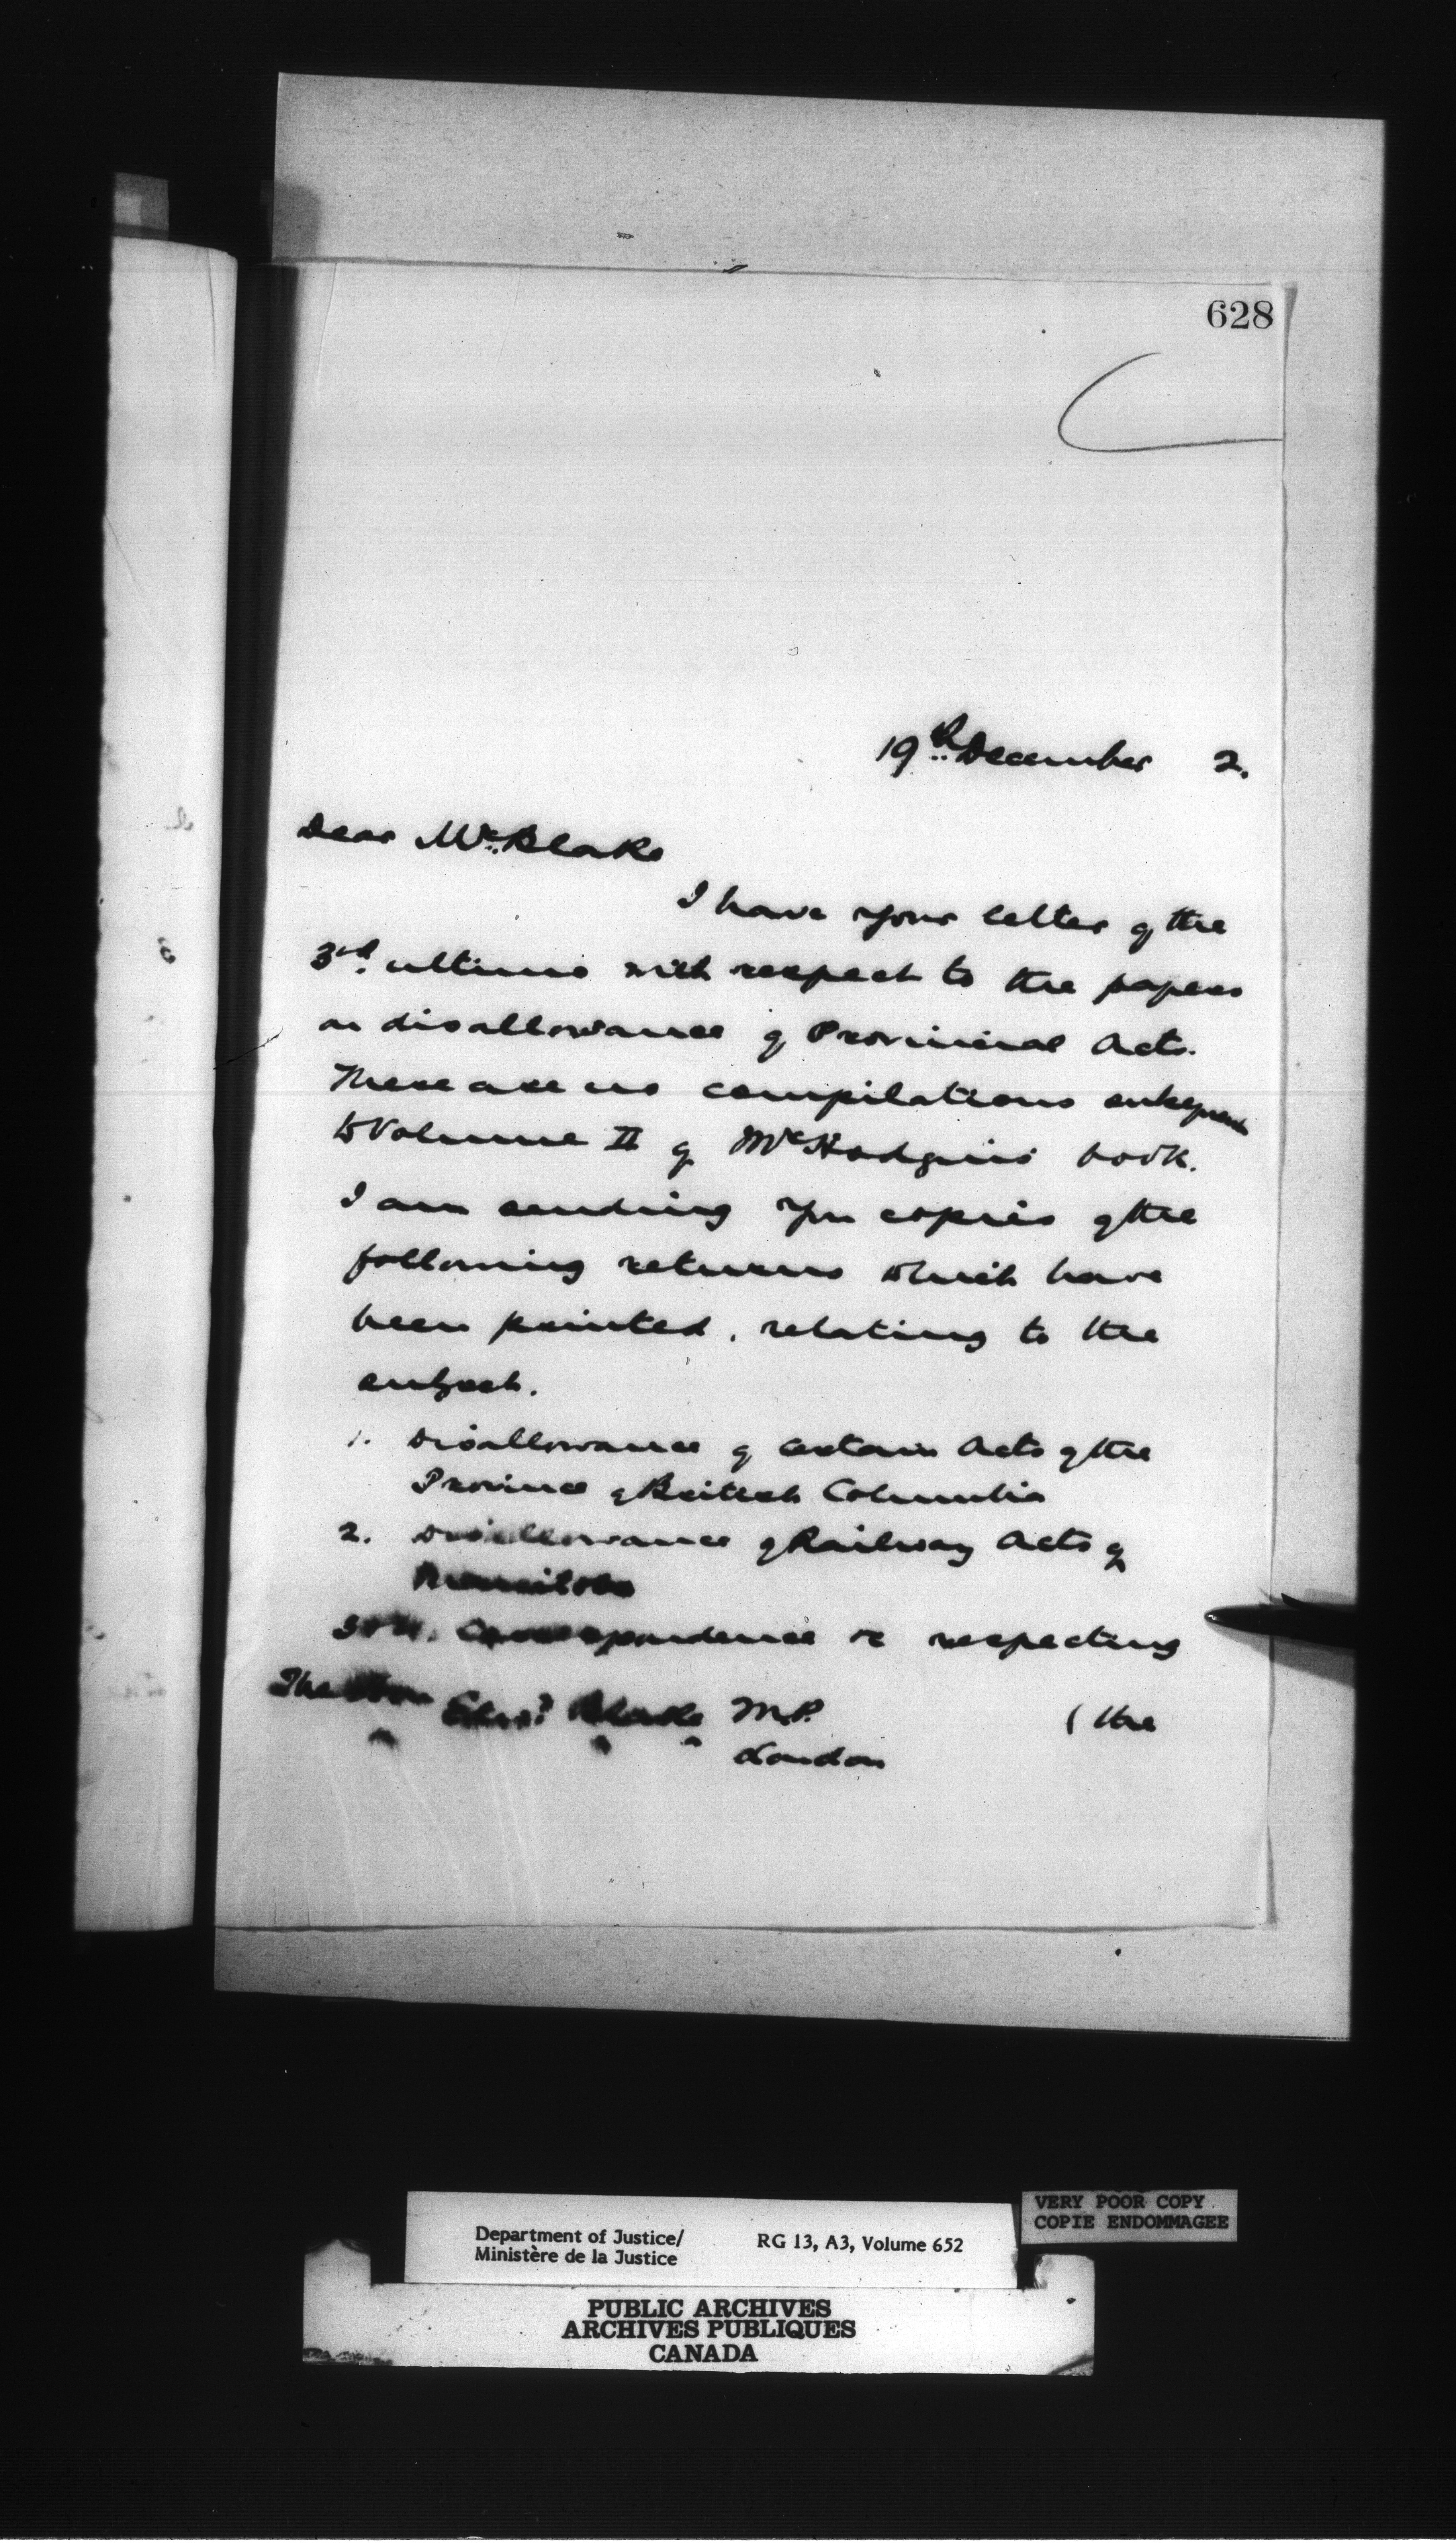 628
19th December 2.
Dear Mr. Blake
I have your letter of the
3rd. ultimo with respect to the papers
on disallowance of Provincial Acts.
There are no compilations subsequent
to Volume II of Mr Hodgins' book.
I am sending you copies of the
following returns which have
been printed, relating to the
subject.
1. Disallowance of certain Acts of the
Province of British Columbia
2. Disallowance of Railway Acts of
Manitoba
3 & 4. Correspondence &c respecting
The Hon Edwd Blake M.P. (the
London
VERY POOR COPY
COPIE ENDOMMAGEE
Department of Justice/ RG 13, A3, Volume 652
Ministère de la Justice
PUBLIC ARCHIVES
ARCHIVES PUBLIQUES
CANADA